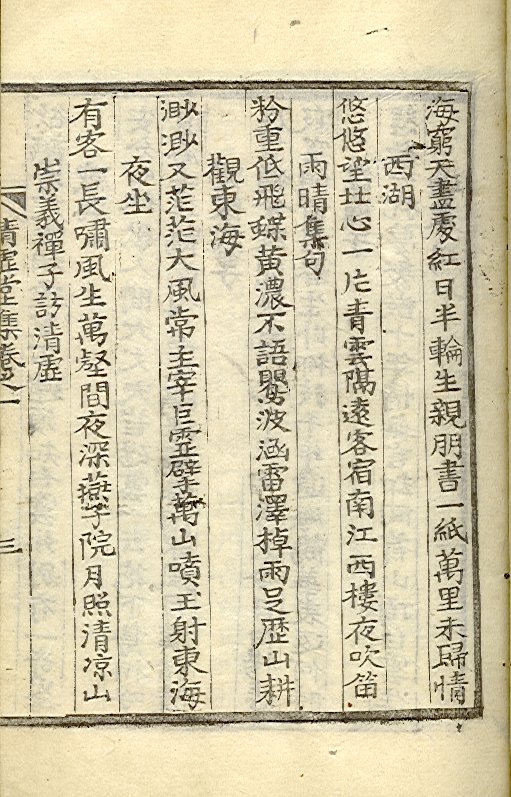 海窮天盡處紅日半輪生親朋書一紙萬里未歸情
西湖
悠悠望北心一片青雲隔遠客宿南江西樓夜吹笛
雨晴集句
粉重低飛蝶黃濃不語鸎波涵雷澤棹雨足歷山耕
觀東海
渺渺又茫茫大風常主宰巨靈擘萬山噴玉射東海
夜坐
有客一長嘯風生萬壑間夜深燕子院月照清凉山
崇義禪子訪清虛
清虛堂集卷之一 三